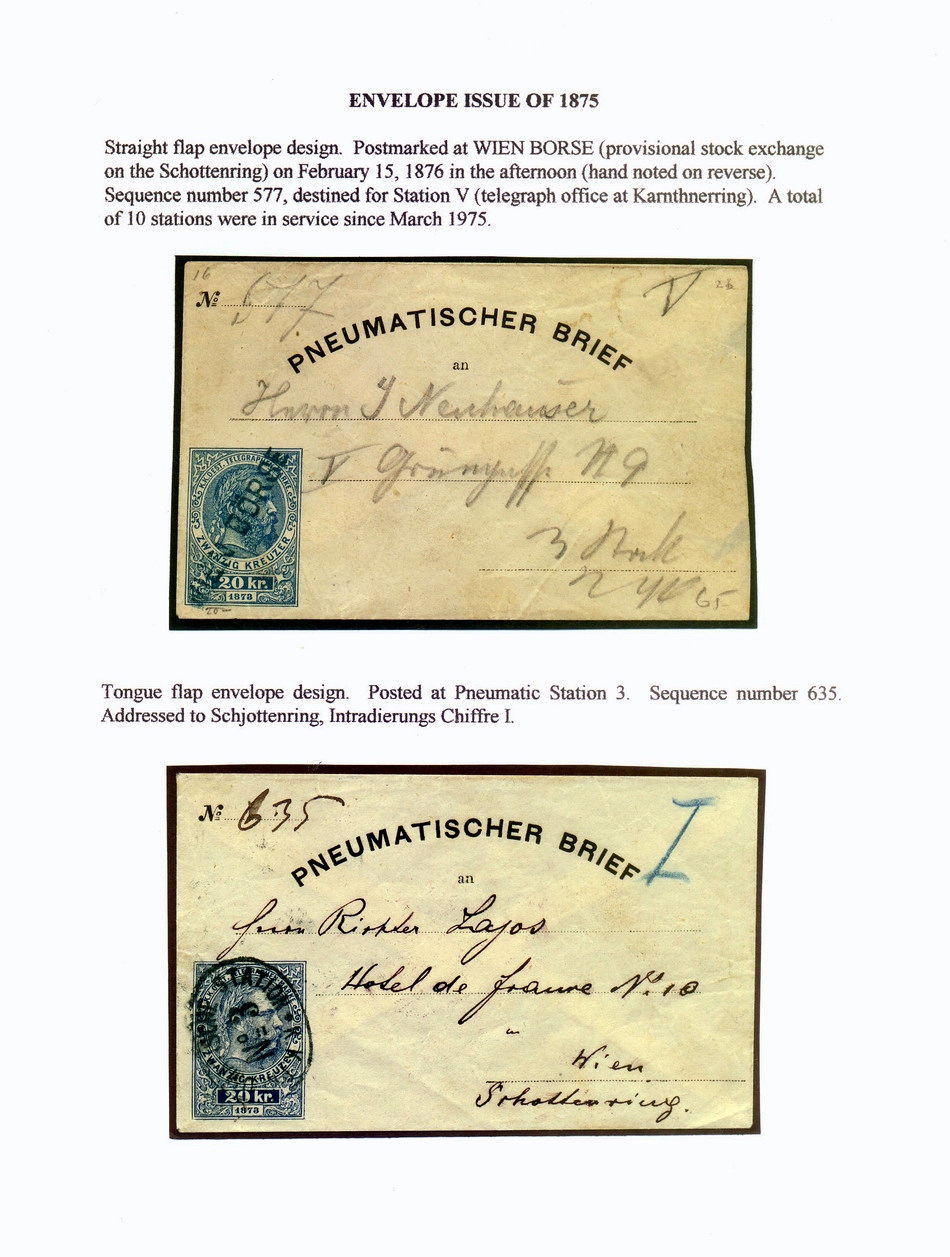 ENVELOPE ISSUE OF 1875
Straight flap envelope design. Postmarked at WIEN BORSE (provisional stock exchange
on the Schottenring) on February 15, 1876 in the afternoon (hand noted on reverse).
Sequence number 577, destined for Station V (telegraph office at Karnthnerring). A total
of 10 stations were in service since March 1975.
16
№ 577
V
PNEUMATISCHER BRIEF
an
Herrn J Neuhauser
V Grüngasse N 9
3 Stock
65
K.K. OEST. TELEGRAPHEN MARKE
BÖRSE
ZWANZIG KREUZER
20 kr.
1873
20
Tongue flap envelope design. Posted at Pneumatic Station 3. Sequence number 635.
Addressed to Schjottenring, Intradierungs Chiffre I.
№ 635
I
PNEUMATISCHER BRIEF
an
Herrn Richter Lajos
Hotel de France No. 10
Wien
Schottenring.
ZWANZIG KREUZER
20 kr.
1873